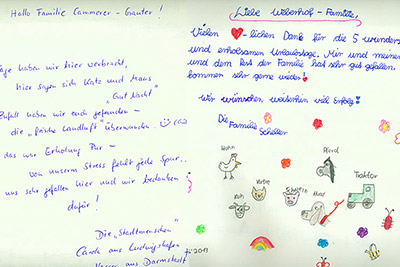 Hallo Familie Cammerer - Gauter !
Tage haben wir hier verbracht,
hier sagen sich Katz und Maus
"Gut Nacht"
Zufall haben wir euch gefunden –
die "frische Landluft" überwunden.
das war Erholung Pur –
von unserem Stress fehlt jede Spur..
uns sehr gefallen hier und wir bedanken
dafür !
Die "Stadtmenschen"
aus Ludwigshafen
aus Darmstadt
Liebe Weberhof - Familie,
Vielen ❤ - lichen Dank für die 5 wunder
und erholsamen Urlaubstage. Mir und meinen
und dem Rest der Familie hat sehr gut gefallen.
kommen sehr gerne wieder!
Wir wünschen weiterhin viel Erfolg!
Die
Familie
Scheller
Huhn
Pferd
Kuh
Katze
Schwein
Hund
Traktor
2013